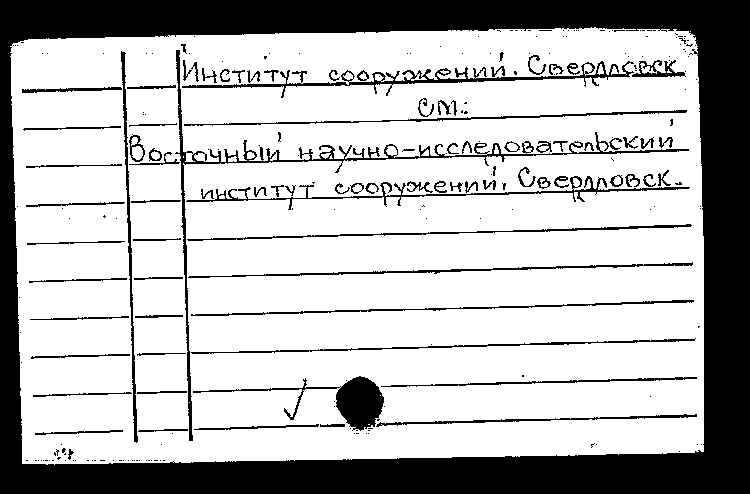 Институт сооружений. Свердловск
см:
Восточный научно-исследовательский
институт сооружений. Свердловск.